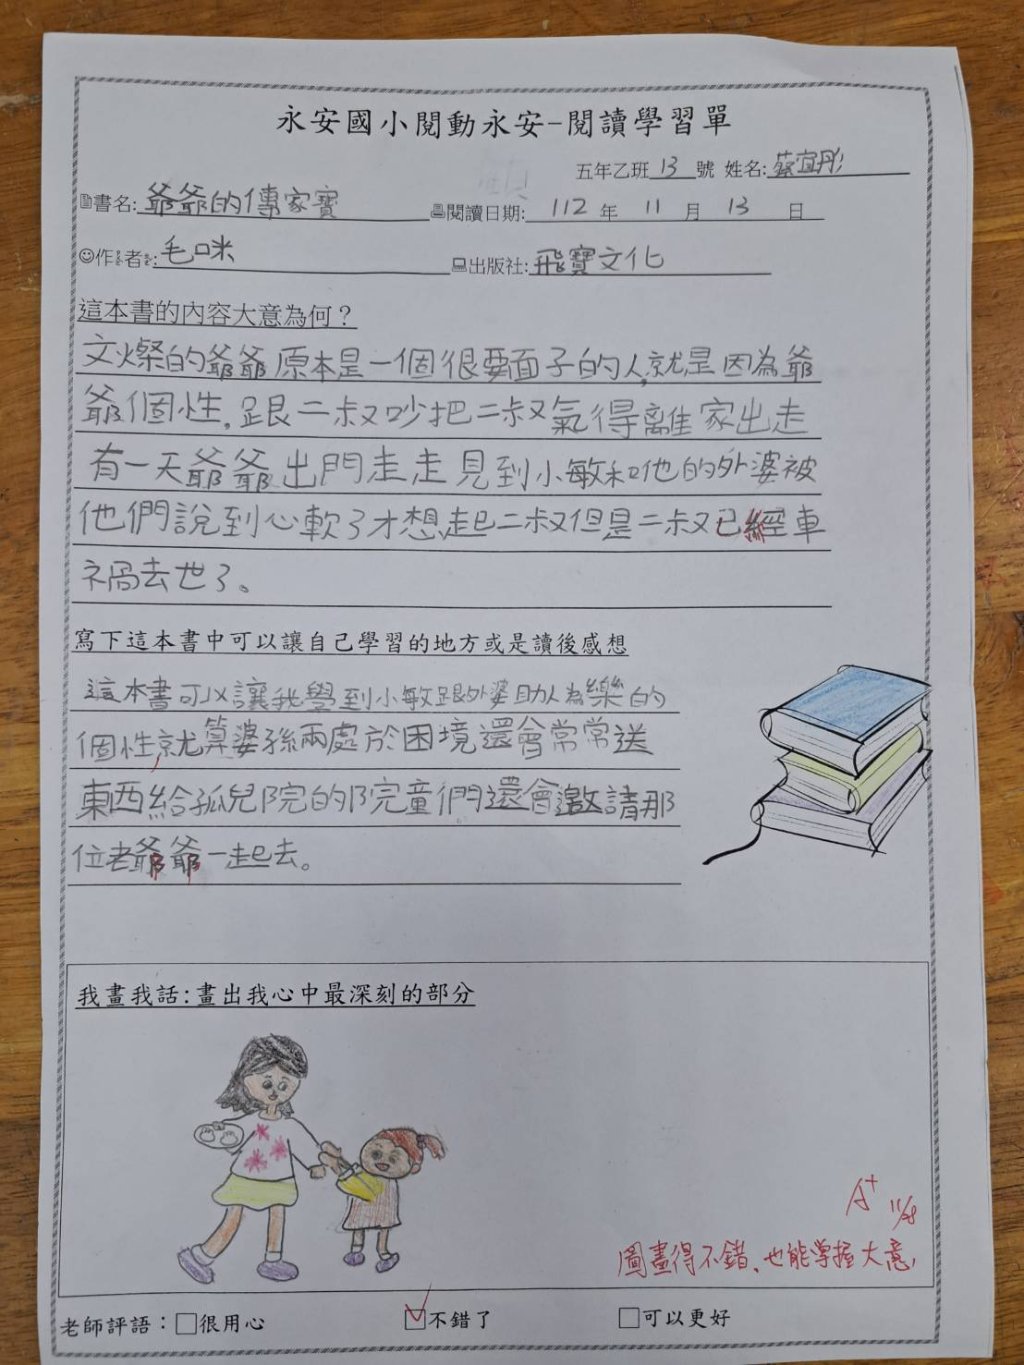 永安國小閱動永安-閱讀學習單
五年乙班 13 號 姓名:蔡宜彤
書名:爺爺的傳家寶 閱讀日期: 112 年 11 月 13 日
作者:毛咪 出版社:飛寶文化
這本書的內容大意為何?
文燦的爺爺原本是一個很要面子的人,就是因為爺
爺個性,跟二叔吵把二叔氣得離家出走
有一天爺爺出門走走見到小敏和他的外婆被
他們說到心軟了才想起二叔但是二叔已經車
禍去世了。
寫下這本書中可以讓自己學習的地方或是讀後感想
這本書可以讓我學到小敏跟外婆助人為樂的
個性,就算婆孫兩處於困境還會常常送
東西給孤兒院的院童們還會邀請那
位老爺爺一起去。
我畫我話:畫出我心中最深刻的部分
A+ 11/28
圖畫得不錯,也能掌握大意,
老師評語:□很用心 ☑不錯了 □可以更好